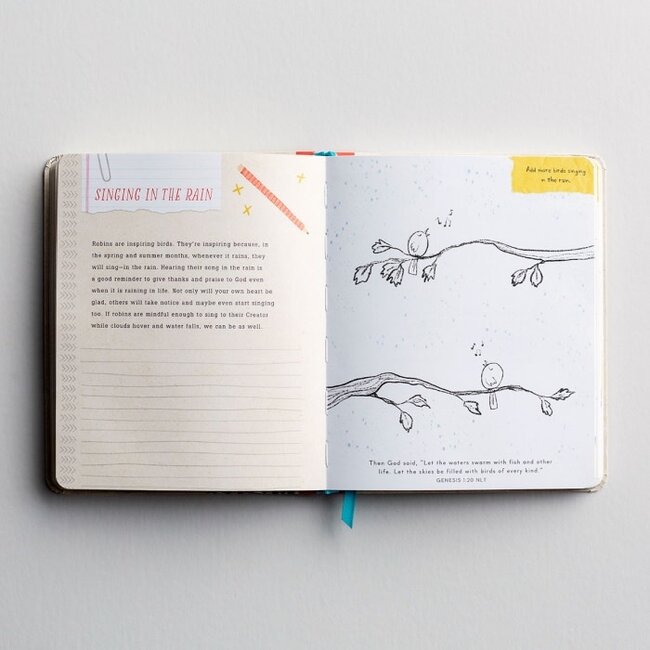 SINGING IN THE RAIN
Robins are inspiring birds. They're inspiring because, in
the spring and summer months, whenever it rains, they
will sing—in the rain. Hearing their song in the rain is
a good reminder to give thanks and praise to God even
when it is raining in life. Not only will your own heart be
glad, others will take notice and maybe even start singing
too. If robins are mindful enough to sing to their Creator
while clouds hover and water falls, we can be as well.
Add more birds singing
in the rain.
Then God said, "Let the waters swarm with fish and other
life. Let the skies be filled with birds of every kind."
GENESIS 1:20 NLT